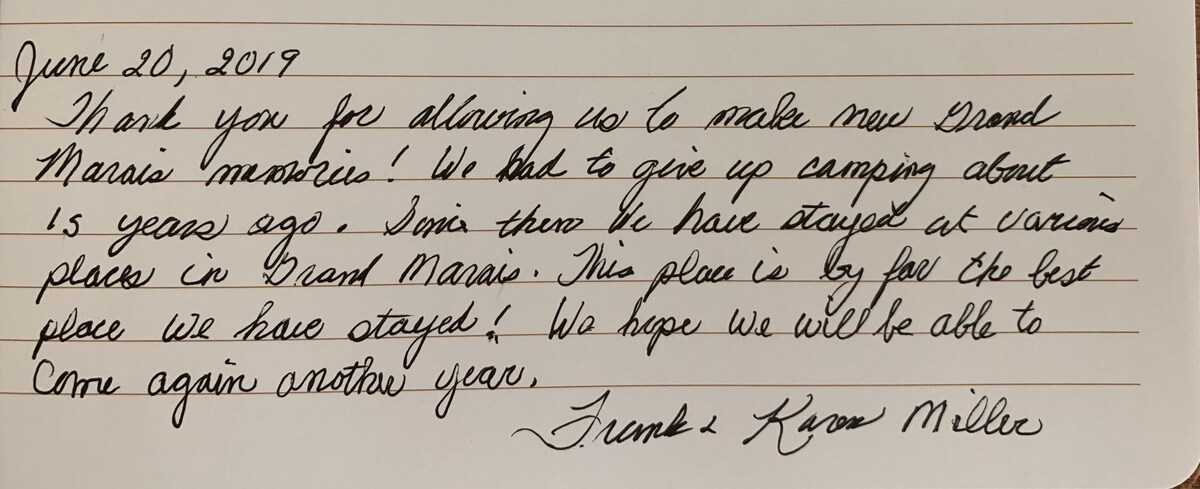 June 20, 2019
Thank you for allowing us to make new Grand
Marais memories! We had to give up camping about
15 years ago. Since then we have stayed at various
places in Grand Marais. This place is by far the best
place we have stayed! We hope we will be able to
Come again another year.
Frank & Karen Miller